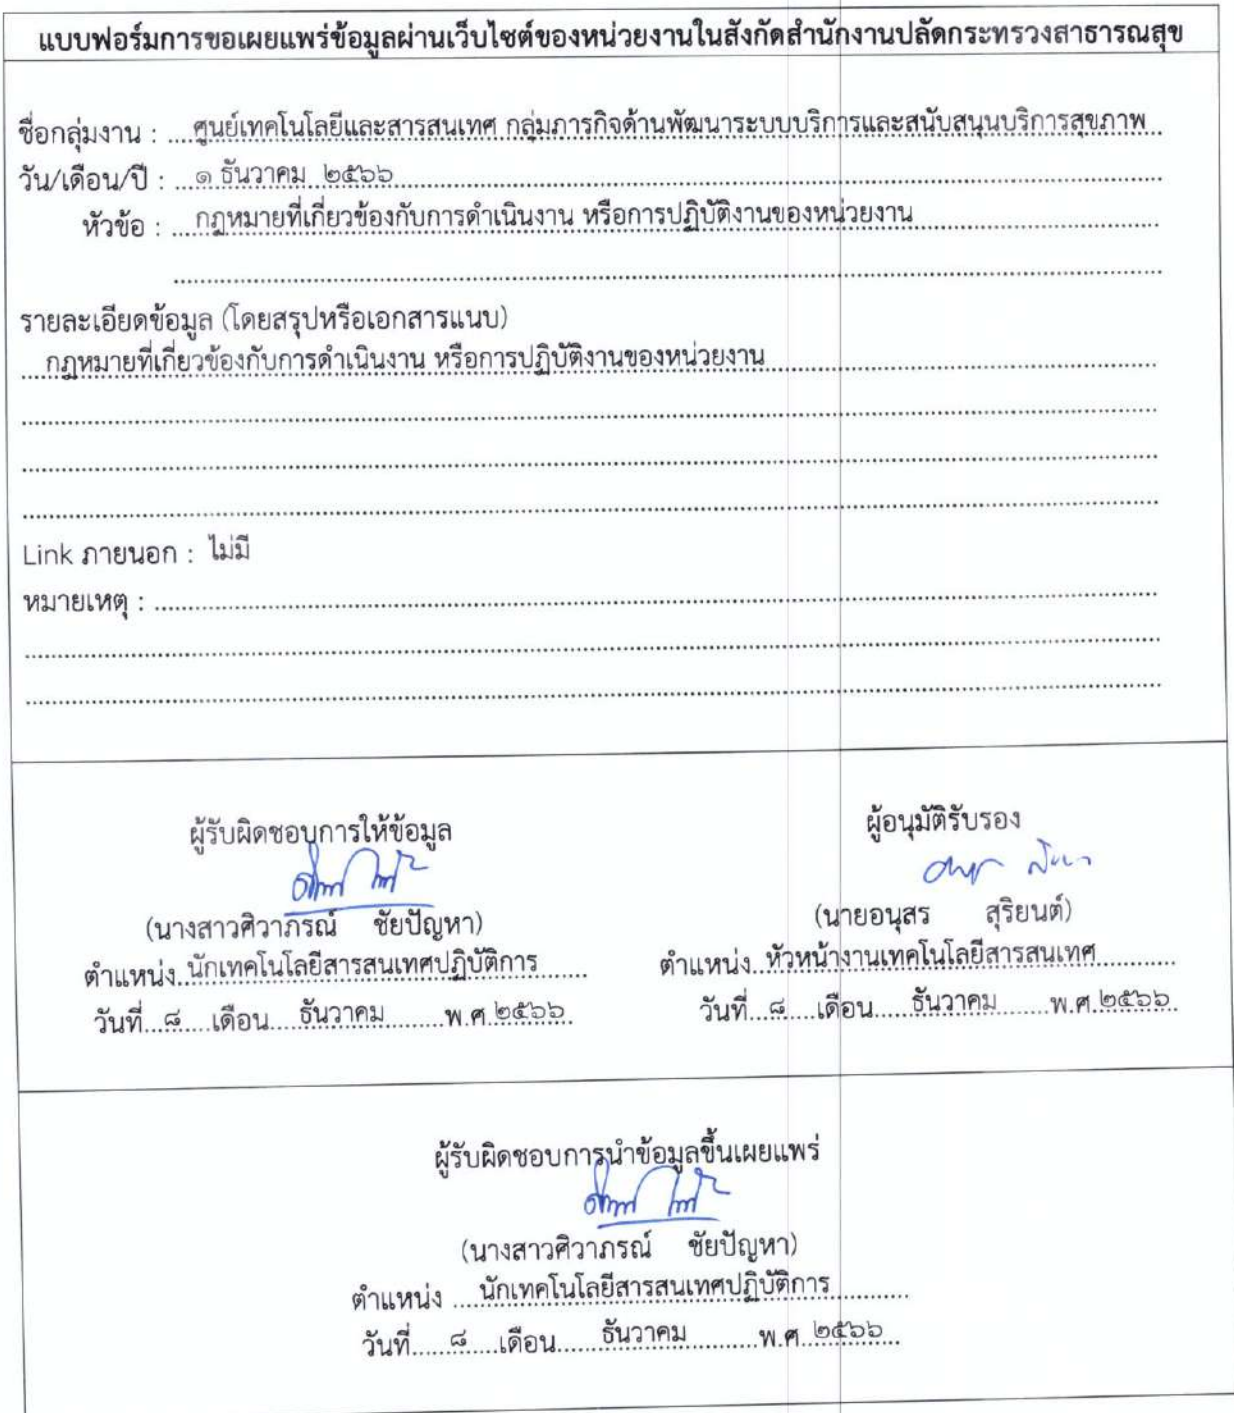 แบบฟอร์มการขอเผยแพร่ข้อมูลผ่านเว็บไซต์ของหน่วยงานในสังกัดสำนักงานปลัดกระทรวงสาธารณสุข
ชื่อกลุ่มงาน : ....ศูนย์เทคโนโลยีและสารสนเทศ กลุ่มภารกิจด้านพัฒนาระบบบริการและสนับสนุนบริการสุขภาพ
วัน/เดือน/ปี : ...๑ ธันวาคม ๒๕๖๖
หัวข้อ : ...กฎหมายที่เกี่ยวข้องกับการดำเนินงาน หรือการปฏิบัติงานของหน่วยงาน
รายละเอียดข้อมูล (โดยสรุปหรือเอกสารแนบ)
...กฎหมายที่เกี่ยวข้องกับการดำเนินงาน หรือการปฏิบัติงานของหน่วยงาน
Link ภายนอก : ไม่มี
หมายเหตุ :
ผู้รับผิดชอบการให้ข้อมูล ผู้อนุมัติรับรอง
(นางสาวศิวาภรณ์ ชัยปัญหา) (นายอนุสร สุริยนต์)
ตำแหน่ง..นักเทคโนโลยีสารสนเทศปฏิบัติการ...... ตำแหน่ง..หัวหน้างานเทคโนโลยีสารสนเทศ...........
วันที่...๘.....เดือน.....ธันวาคม.........พ.ศ.๒๕๖๖. วันที่...๘.....เดือน.....ธันวาคม........พ.ศ.๒๕๖๖.
ผู้รับผิดชอบการนำข้อมูลขึ้นเผยแพร่
(นางสาวศิวาภรณ์ ชัยปัญหา)
ตำแหน่ง ...นักเทคโนโลยีสารสนเทศปฏิบัติการ...........
วันที่......๘.....เดือน......ธันวาคม..........พ.ศ..๒๕๖๖..